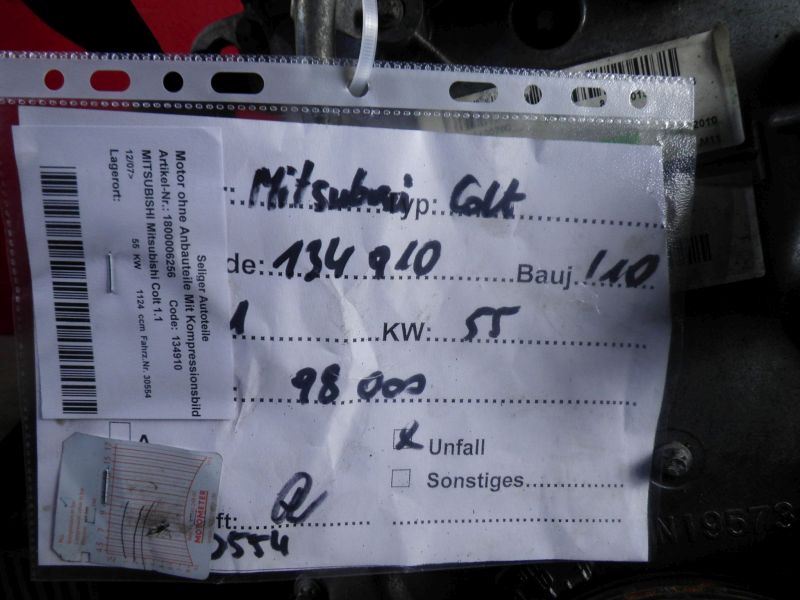 Seliger Autoteile
Motor ohne Anbauteile Mit Kompressionsbild
Artikel-Nr.: 1800006256 Code: 134910
MITSUBISHI Mitsubishi Colt 1.1
12/07> 55 KW 1124 ccm Fahrz.Nr. 30554
Lagerort:
Mitsubishi Typ: Colt
de: 134 910 Bauj. 110
1 KW: 55
98 000
A
x Unfall
Sonstiges
ft:
0554
MOTOMETER
2010
M11
N19573